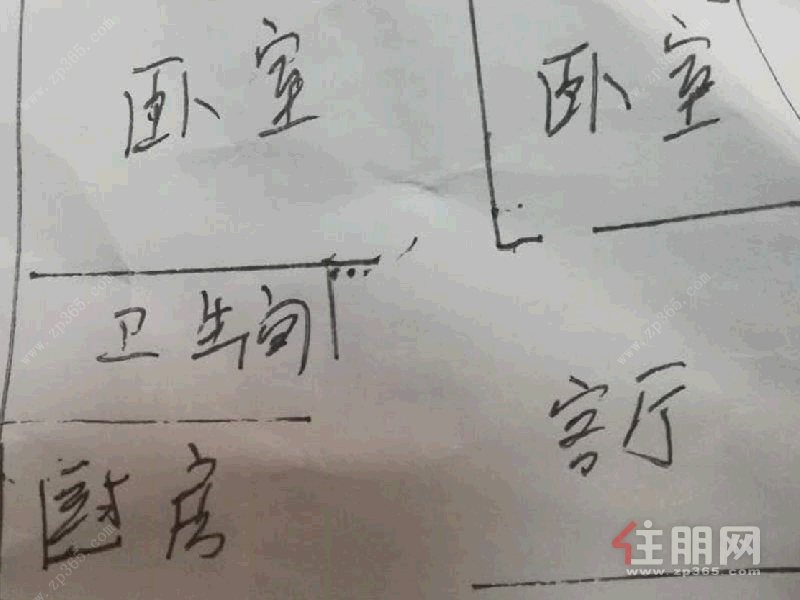 卧室
卧室
卫生间
客厅
厨房
住朋网
www.zp365.com